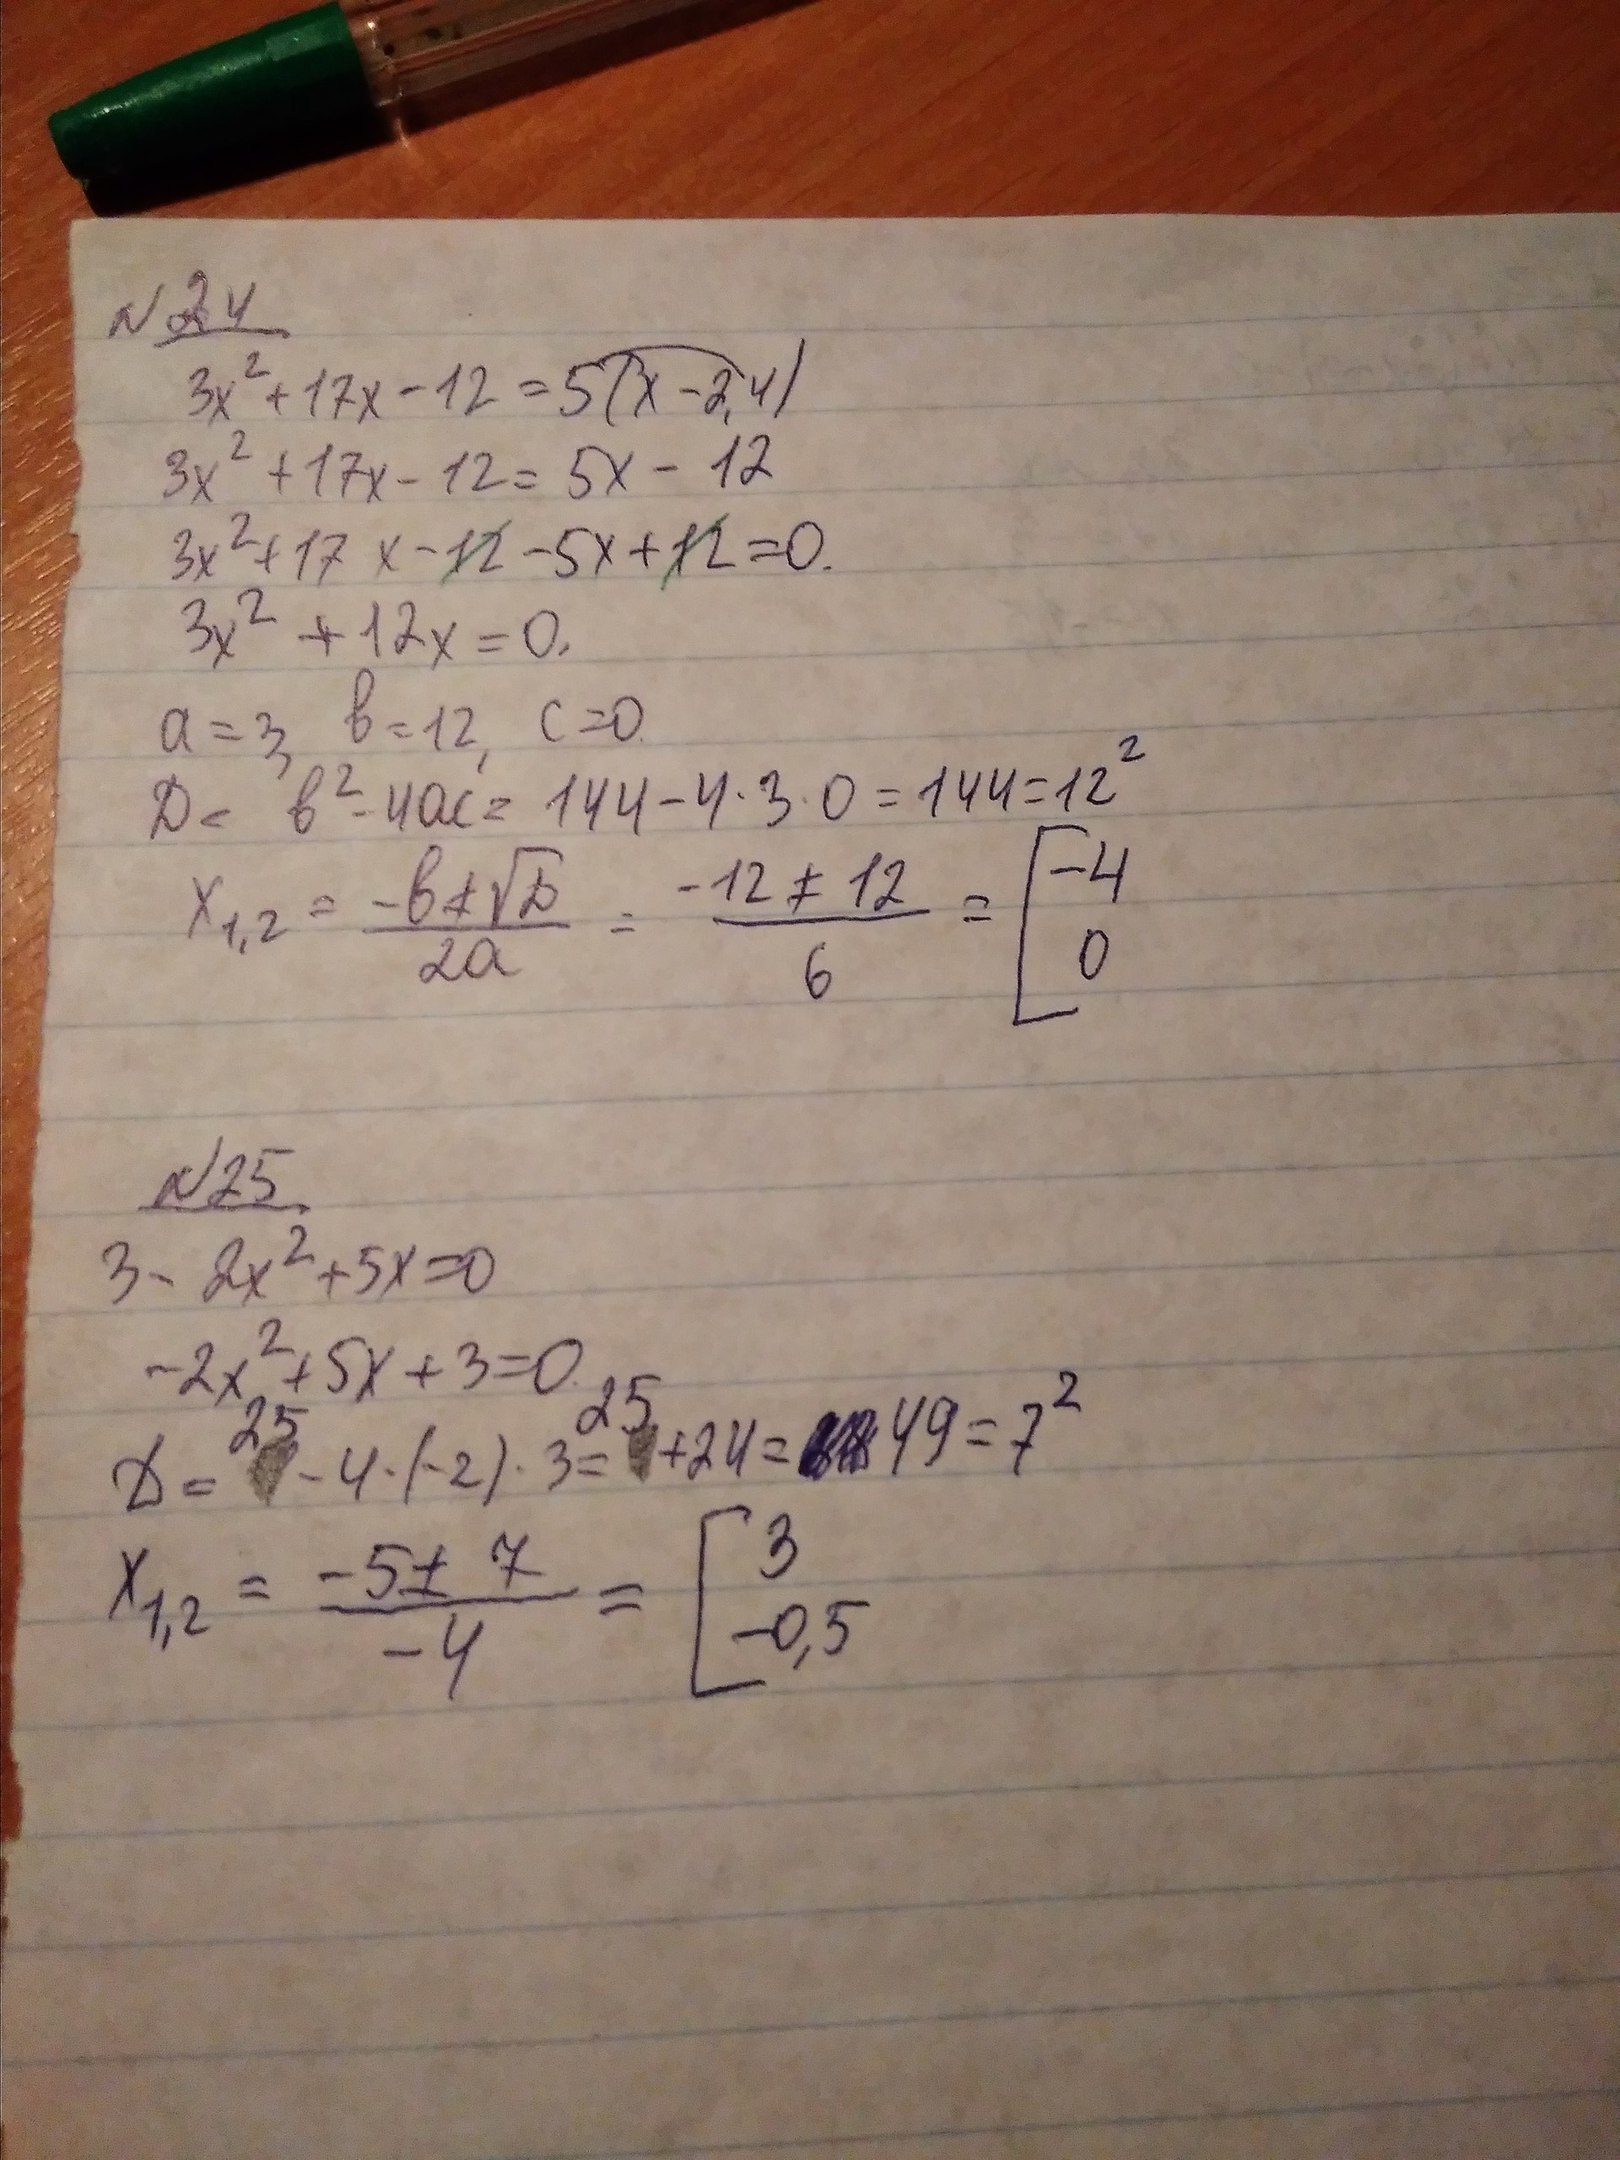 N24
3x² + 17x - 12 = 5(x - 2,4)
3x² + 17x - 12 = 5x - 12
3x² + 17x - 12 - 5x + 12 = 0.
3x² + 12x = 0.
a = 3, b = 12, c = 0.
D = b² - 4ac = 144 - 4·3·0 = 144 = 12²
x₁,₂ = (-b ± √D)/(2a) = (-12 ± 12)/6 = [-4 0
N25.
3 - 2x² + 5x = 0
-2x² + 5x + 3 = 0.
D = 25 - 4·(-2)·3 = 25 + 24 = 49 = 7²
x₁,₂ = (-5 ± 7)/(-4) = [3 -0,5